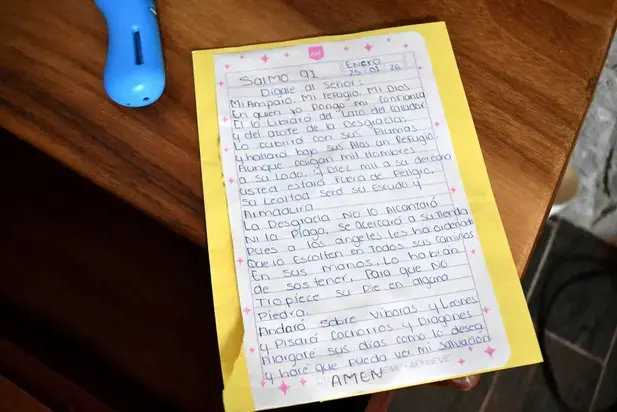 SALMO 91
ENERO
25 01 26
Digale al Señor:
Mi Amparo, Mi refugio, Mi Dios
En quien yo pongo mi confianza
El lo Librara del Lazo del cazador
y del azote de la Desgracia,
Lo cubrira con sus Plumas
y hallará bajo sus Alas un Refugio
Aunque caigan mil Hombres
a su Lado, y Diez mil a su derecha
usted estará Fuera de Peligro,
Su Lealtad será su Escudo y
Armadura.
La Desgracia NO lo Alcanzará
Ni la Plaga, se Acercará a su tienda
Pues a los angeles les ha ordenado
Que lo Escolten en todos sus caminos
En sus manos, Lo habrán
de sostener, Para que NO
Tropiece su Pie en alguna
Piedra.
Andará sobre Viboras y Leones
y Pisará Cachorros y Dragones
Alargaré sus dias como lo desea
y haré que pueda ver mi salvación
AMEN